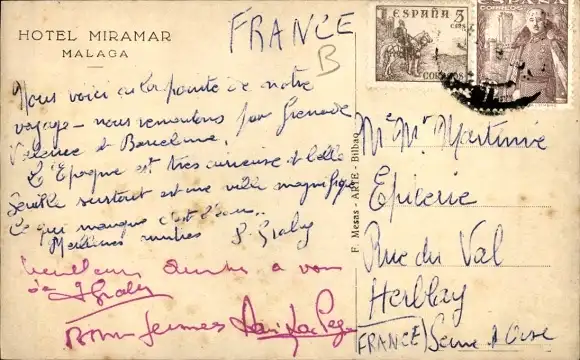 HOTEL MIRAMAR
MALAGA
FRANCE
B
ESPAÑA 5 CTS
CORREOS
ESPAÑA
CORREOS
Nous voici à la pointe de notre
voyage - nous remontons par Grenade
Valence et Barcelone.
L'Espagne est très curieuse et belle
Seville surtout est une ville magnifique
Ce qui manque c'est l'eau..
Meilleures
Meilleurs à vous
Bonnes
F. Mesas - ARTE - Bilbao
Me Mr Martinie
Epicerie
Rue du Val
Herblay
(FRANCE) Seine & Oise